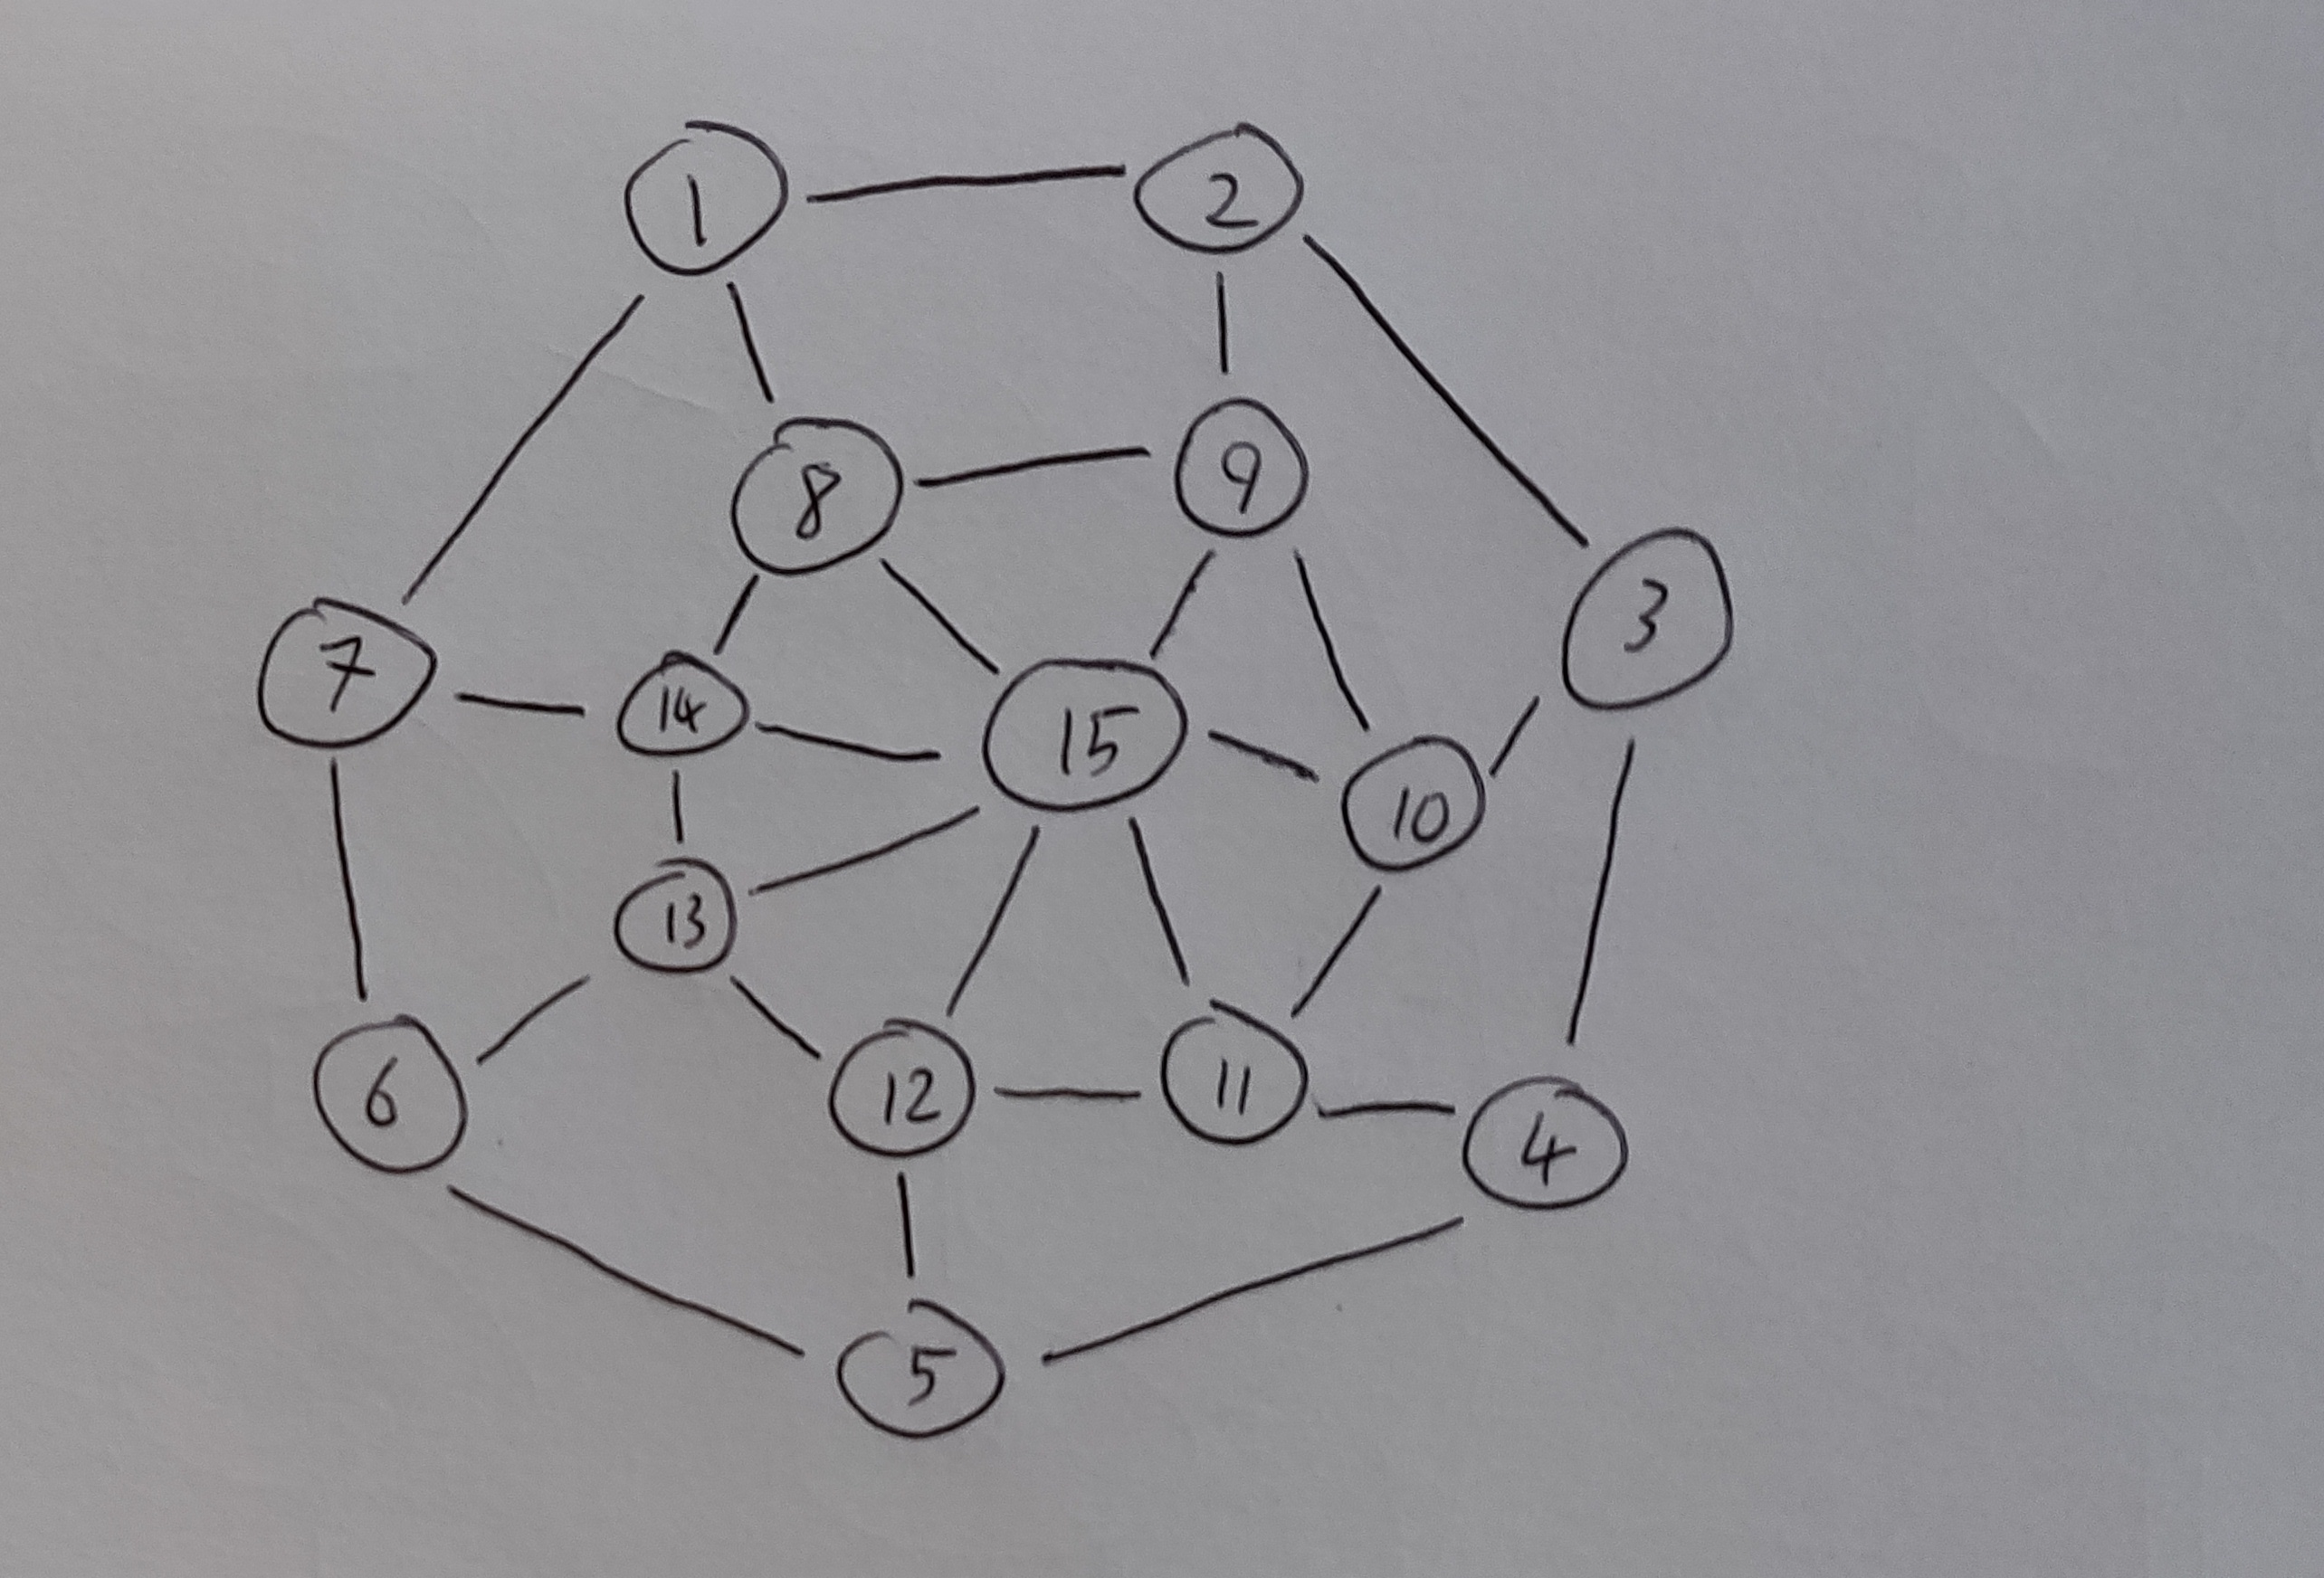 1
2
8
9
3
7
14
15
10
13
6
12
11
4
5